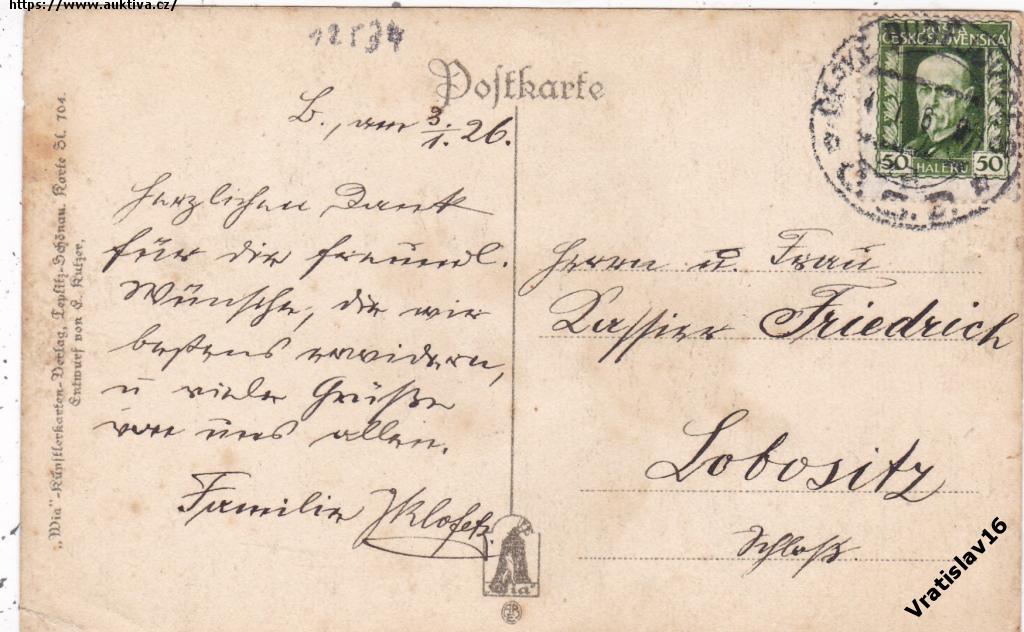 https://www.auktiva.cz/
12534
Postkarte
ČESKOSLOVENSKÁ
50 HALÉŘŮ 50
B., am 3./1. 26.
Herzlichen Dank
für die freundl.
Wünsche, die wir
bestens erwidern,
u viele Grüße
von uns allen.
Familie Klofetz.
Herrn u. Frau
Kassier Friedrich
Lobositz
Schloß
„Wia"-Künstlerkarten-Verlag, Teplitz-Schönau. Karte Bl. 704.
Entwurf von E. Kutzer.
Wia
Vratislav16